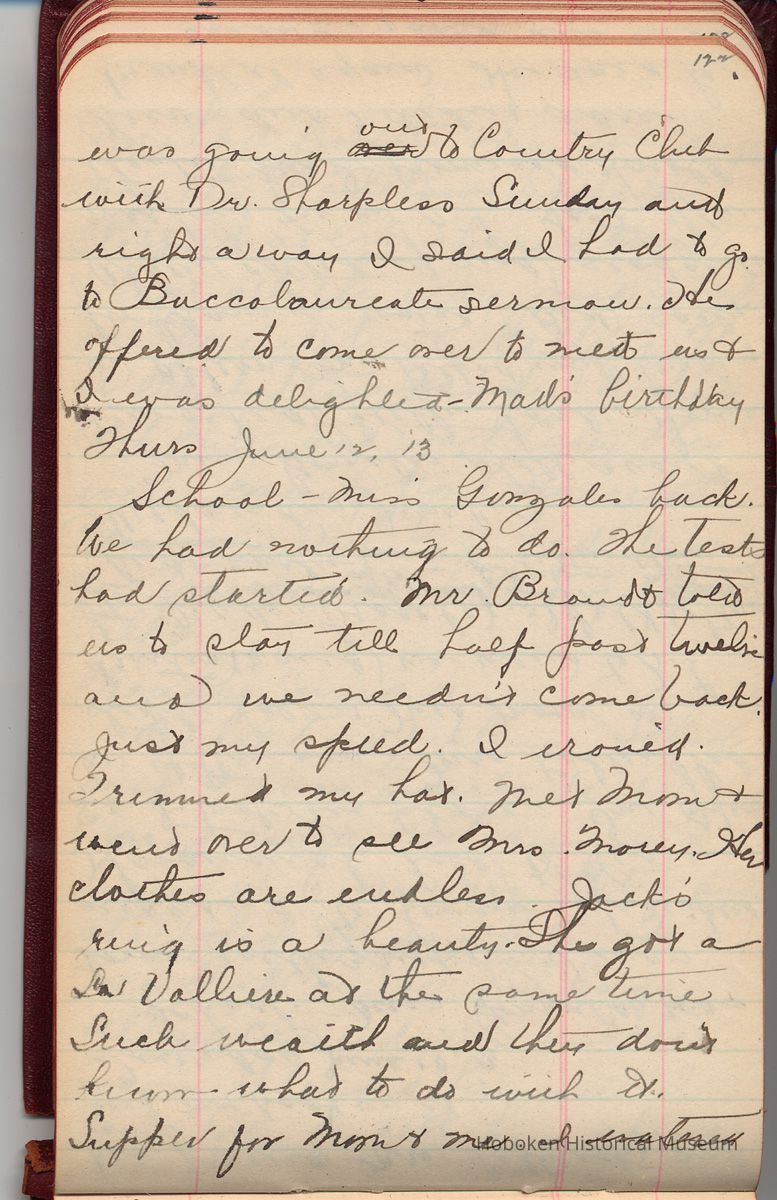 122
was going out over to Country Club
with Dr. Sharpless Sunday and
right away I said I had to go
to Baccolaureate sermon. He
offered to come over to meet us &
I was delighted - Mad's birthday
Thurs June 12, 13
School - Miss Gonzales back.
We had nothing to do. The tests
had started. Mr. Brandt told
us to stay till half past twelve
and we needn't come back.
Just my speed. I ironed.
Trimmed my hat. Met Mom &
went over to see Mrs. Morey. Her
clothes are endless. Jack's
ring is a beauty. She got a
La Valliere at the same time
Such wealth and they don't
know what to do with it.
Supper for Mom & me.
Hoboken Historical Museum